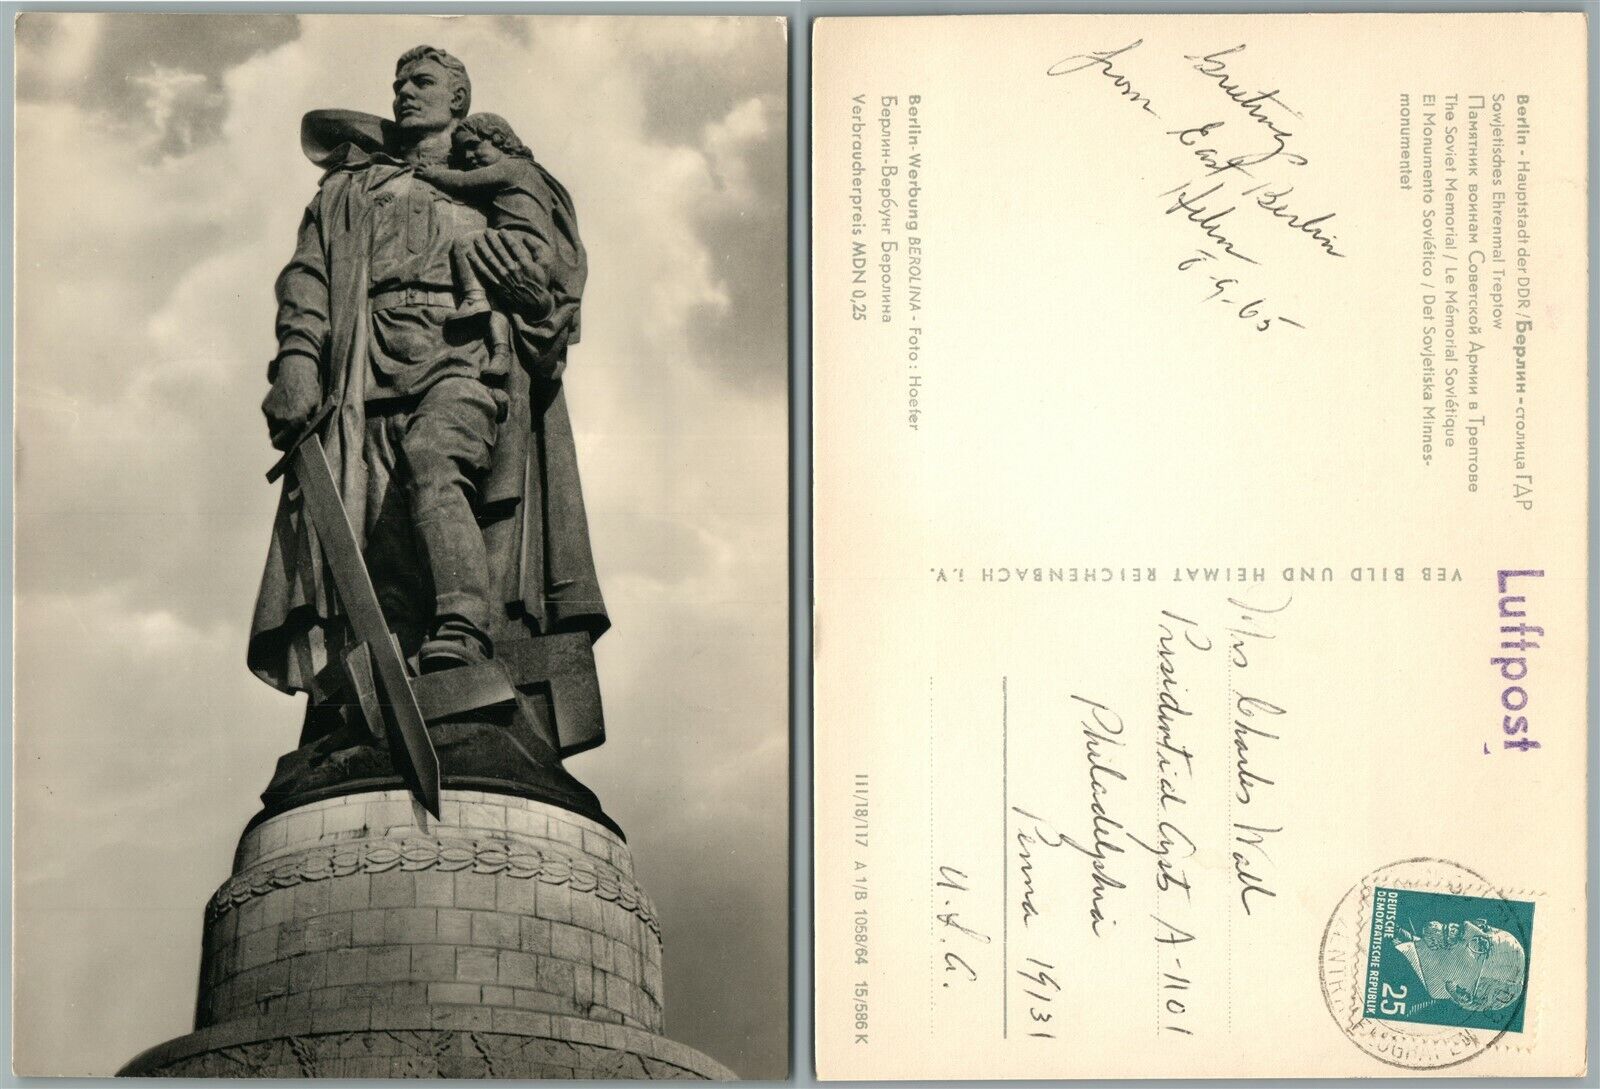 Berlin - Hauptstadt der DDR / Берлин - столица ГДР
Sowjetisches Ehrenmal Treptow
Памятник воинам Советской Армии в Трептове
The Soviet Memorial / Le Mémorial Soviétique
El Monumento Soviético / Det Sovjetiska Minnes-
monumentet
Greetings
from East Berlin
Helen
6-9-65
Berlin-Werbung BEROLINA - Foto: Hoefer
Берлин-Вербунг Беролина
Verbraucherpreis MDN 0,25
VEB BILD UND HEIMAT REICHENBACH i.V.
Luftpost
DEUTSCHE
DEMOKRATISCHE REPUBLIK
25
Mrs Charles Wall
Presidential Apts A-1101
Philadelphia
Penna 19131
U.S.A.
III/18/117 A 1/B 1058/64 15/586 K